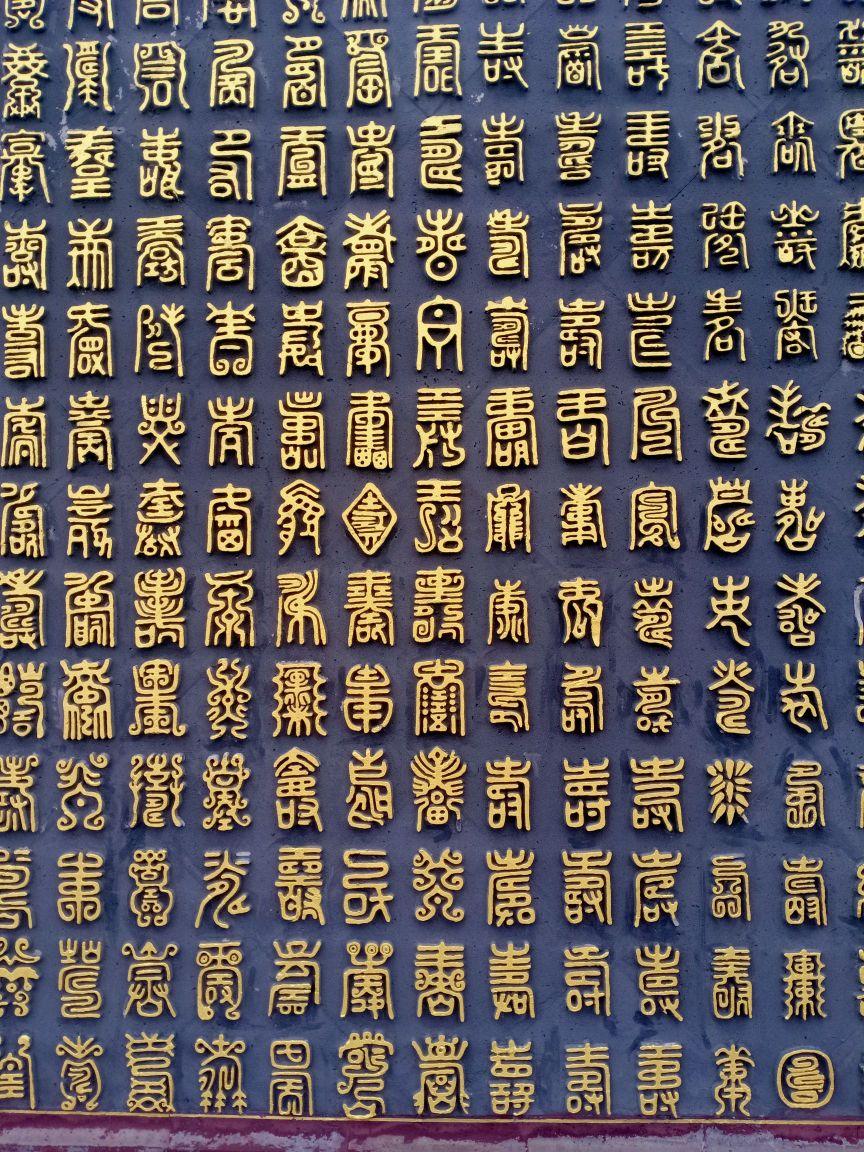 壽壽壽壽壽壽壽壽壽壽壽壽
壽壽壽壽壽壽壽壽壽壽壽壽
壽壽壽壽壽壽壽壽壽壽壽壽
壽壽壽壽壽壽壽壽壽壽壽壽
壽壽壽壽壽壽壽壽壽壽壽壽
壽壽壽壽壽壽壽壽壽壽壽壽
壽壽壽壽壽壽壽壽壽壽壽壽
壽壽壽壽壽壽壽壽壽壽壽壽
壽壽壽壽壽壽壽壽壽壽壽壽
壽壽壽壽壽壽壽壽壽壽壽壽
壽壽壽壽壽壽壽壽壽壽壽壽
壽壽壽壽壽壽壽壽壽壽壽壽